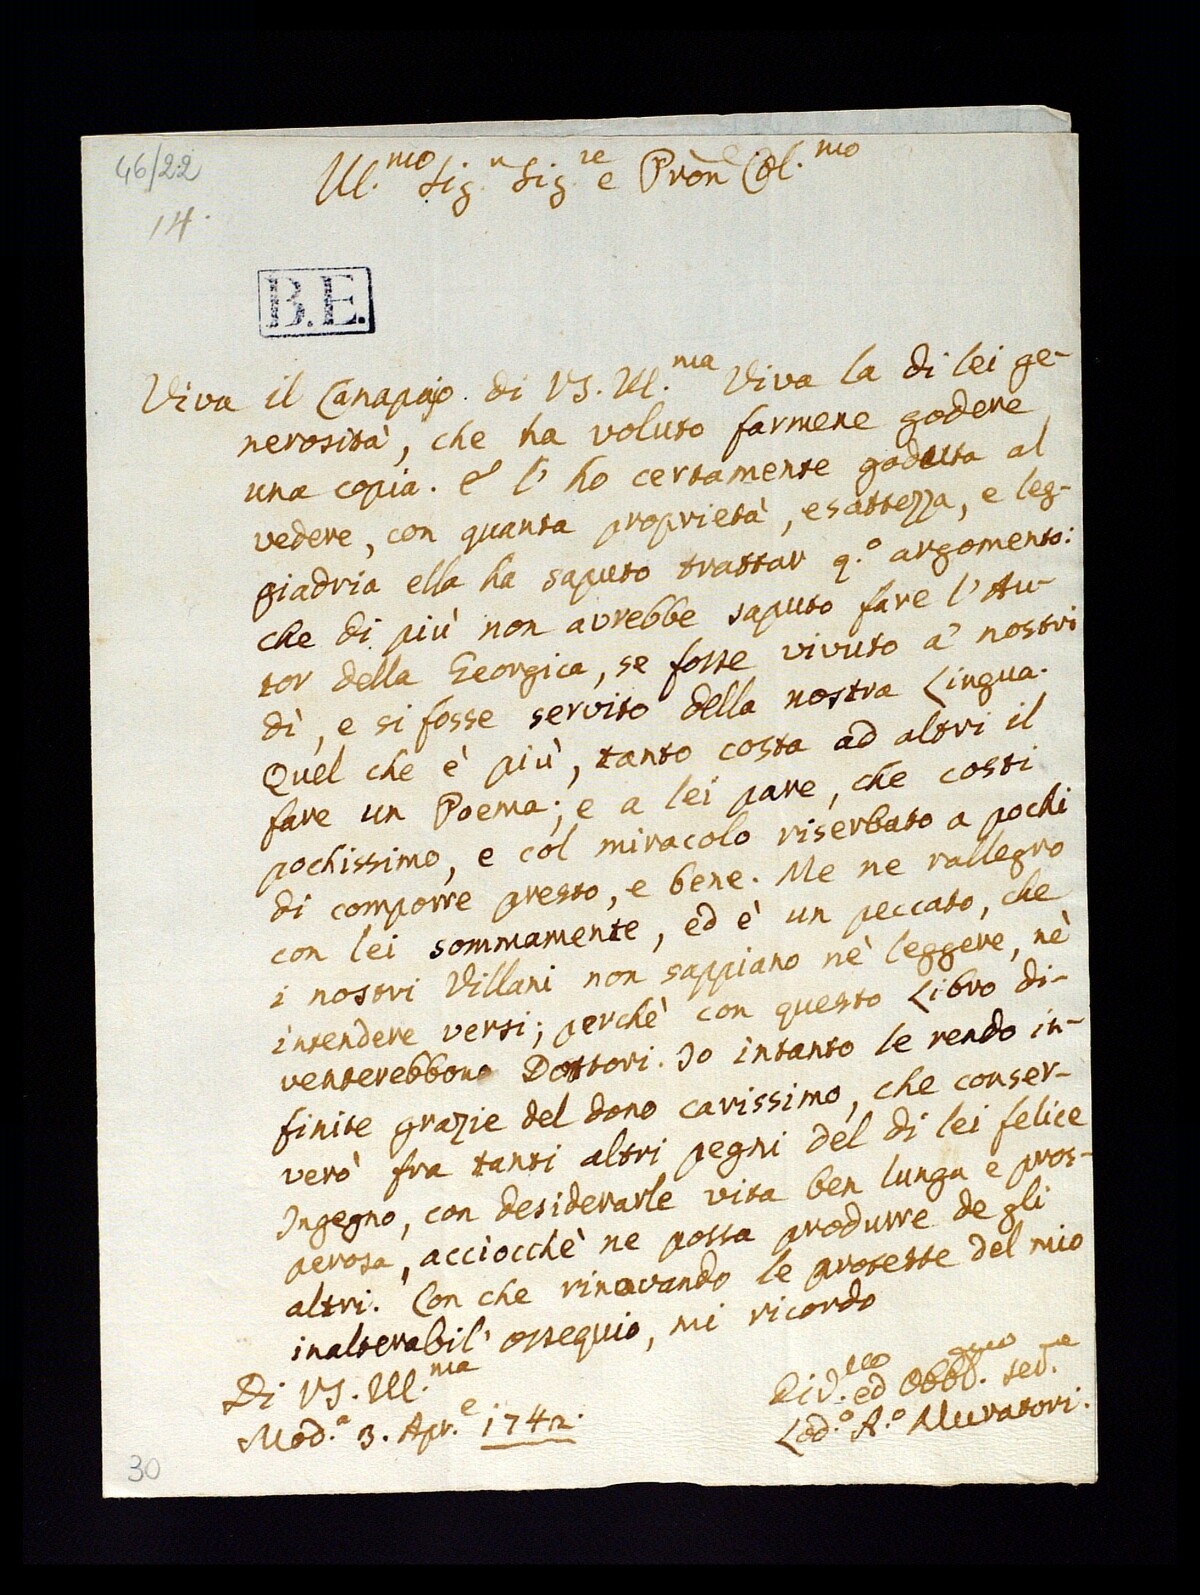 46/22
14.
Ill.mo Sig.r Sig.re e Pron Col.mo
B.E.
Viva il Canapajo di VS. Ill.ma Viva la di lei ge-
nerosità, che ha voluto farmene godere
una copia. E l'ho certamente goduta al
vedere, con quanta proprietà, esattezza, e leg-
giadria ella ha saputo trattar q.o argomento:
che di più non avrebbe saputo fare l'Au-
tor della Georgica, se fosse vivuto a' nostri
dì, e si fosse servito della nostra Lingua.
Quel che è più, tanto costa ad altri il
fare un Poema; e a lei pare, che costi
pochissimo, e col miracolo riserbato a pochi
di comporre presto, e bene. Me ne rallegro
con lei sommamente, ed è un peccato, che
i nostri Villani non sappiano nè leggere, nè
intendere versi; perchè con questo Libro di-
venterebbono Dottori. Io intanto le rendo in-
finite grazie del dono carissimo, che conser-
verò fra tanti altri pegni del di lei felice
Ingegno, con desiderarle vita ben lunga e pros-
perosa, acciocchè ne possa produrre degli
altri. Con che rinovando le proteste del mio
inalterabil' ossequio, mi ricordo
Di VS. Ill.ma
Mod.a 3. Apr.e 1742.
Div.mo ed Obbl.mo Ser.re
Lod.o A.o Muratori.
30